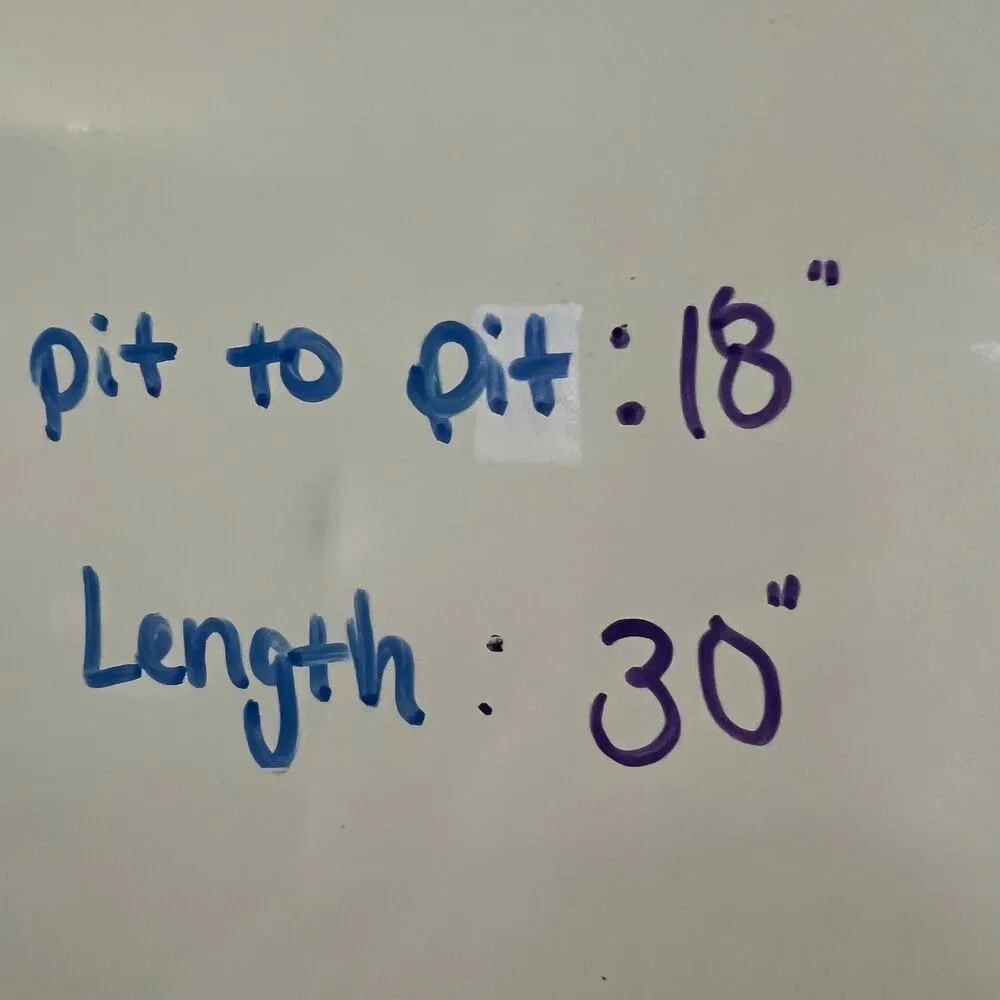 pit to pit : 18"
Length : 30"